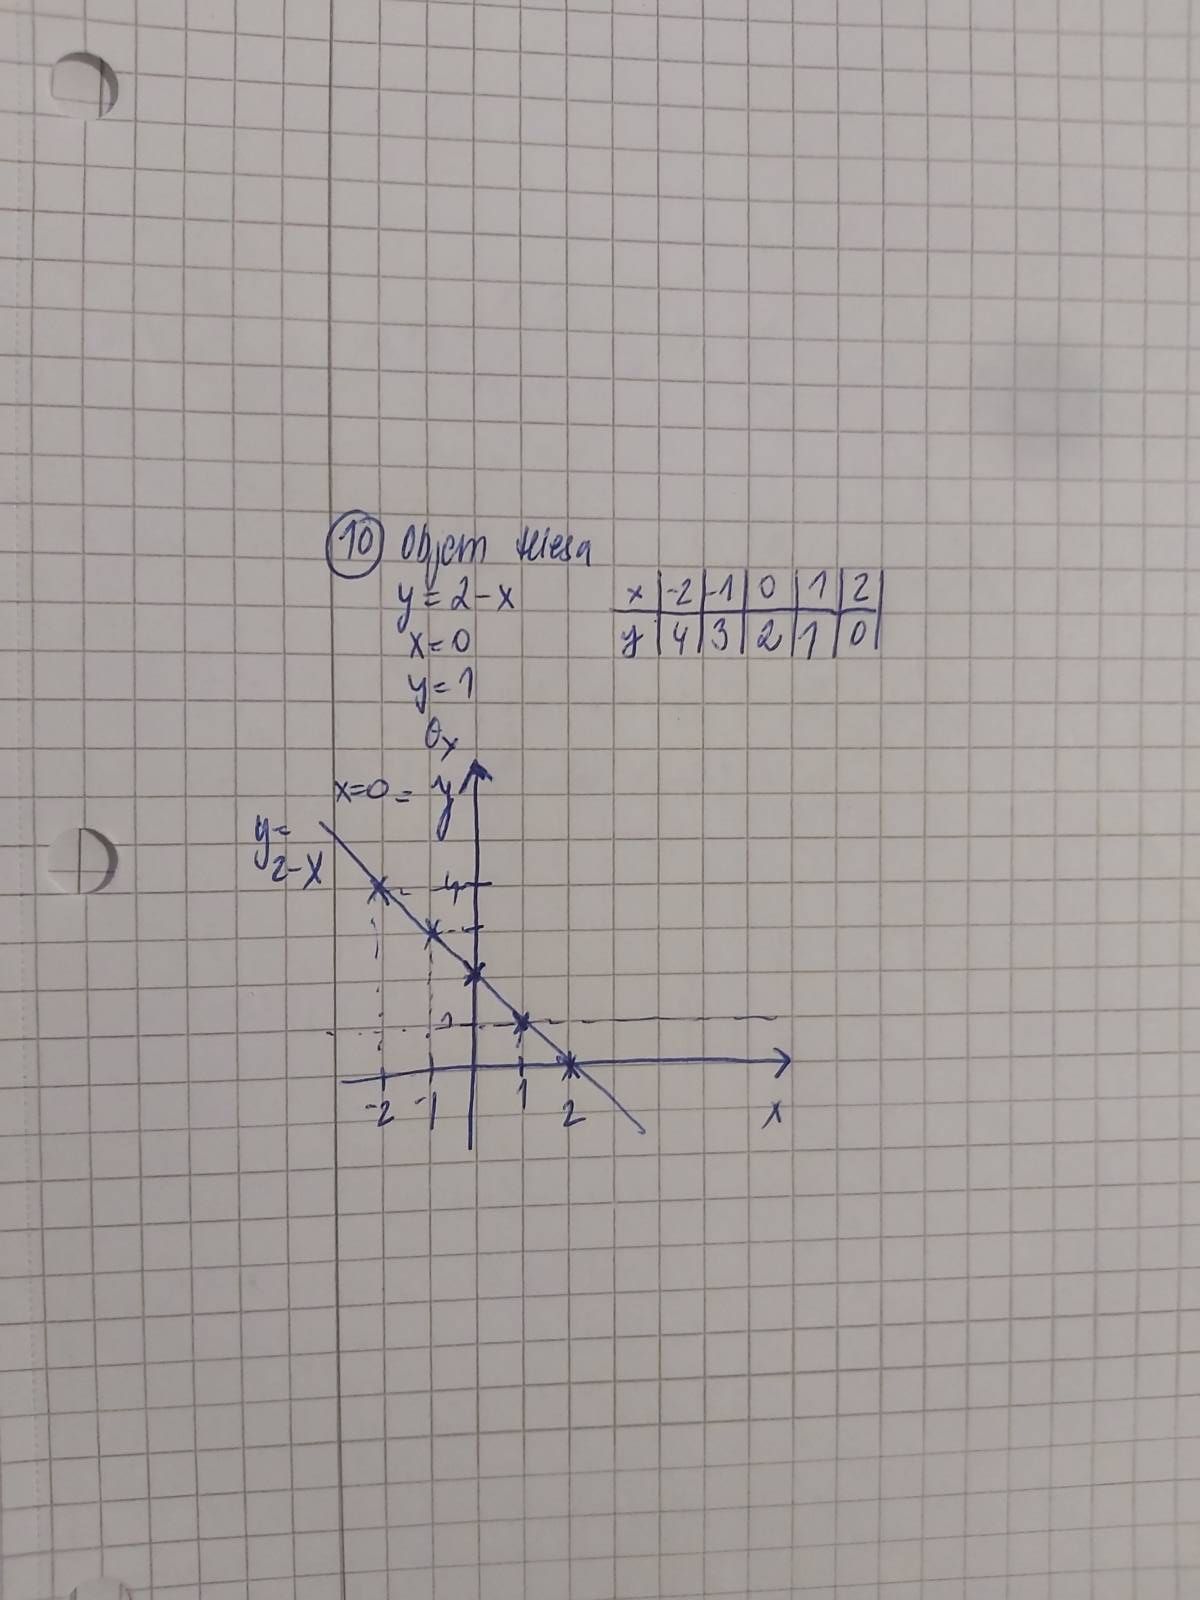 10 Objem telesa
y = 2 - x
x = 0
y = 1
Ox
x -2 -1 0 1 2
y 4 3 2 1 0
x=0 = y
y =
2-x
4
1
-2 -1 1 2 x